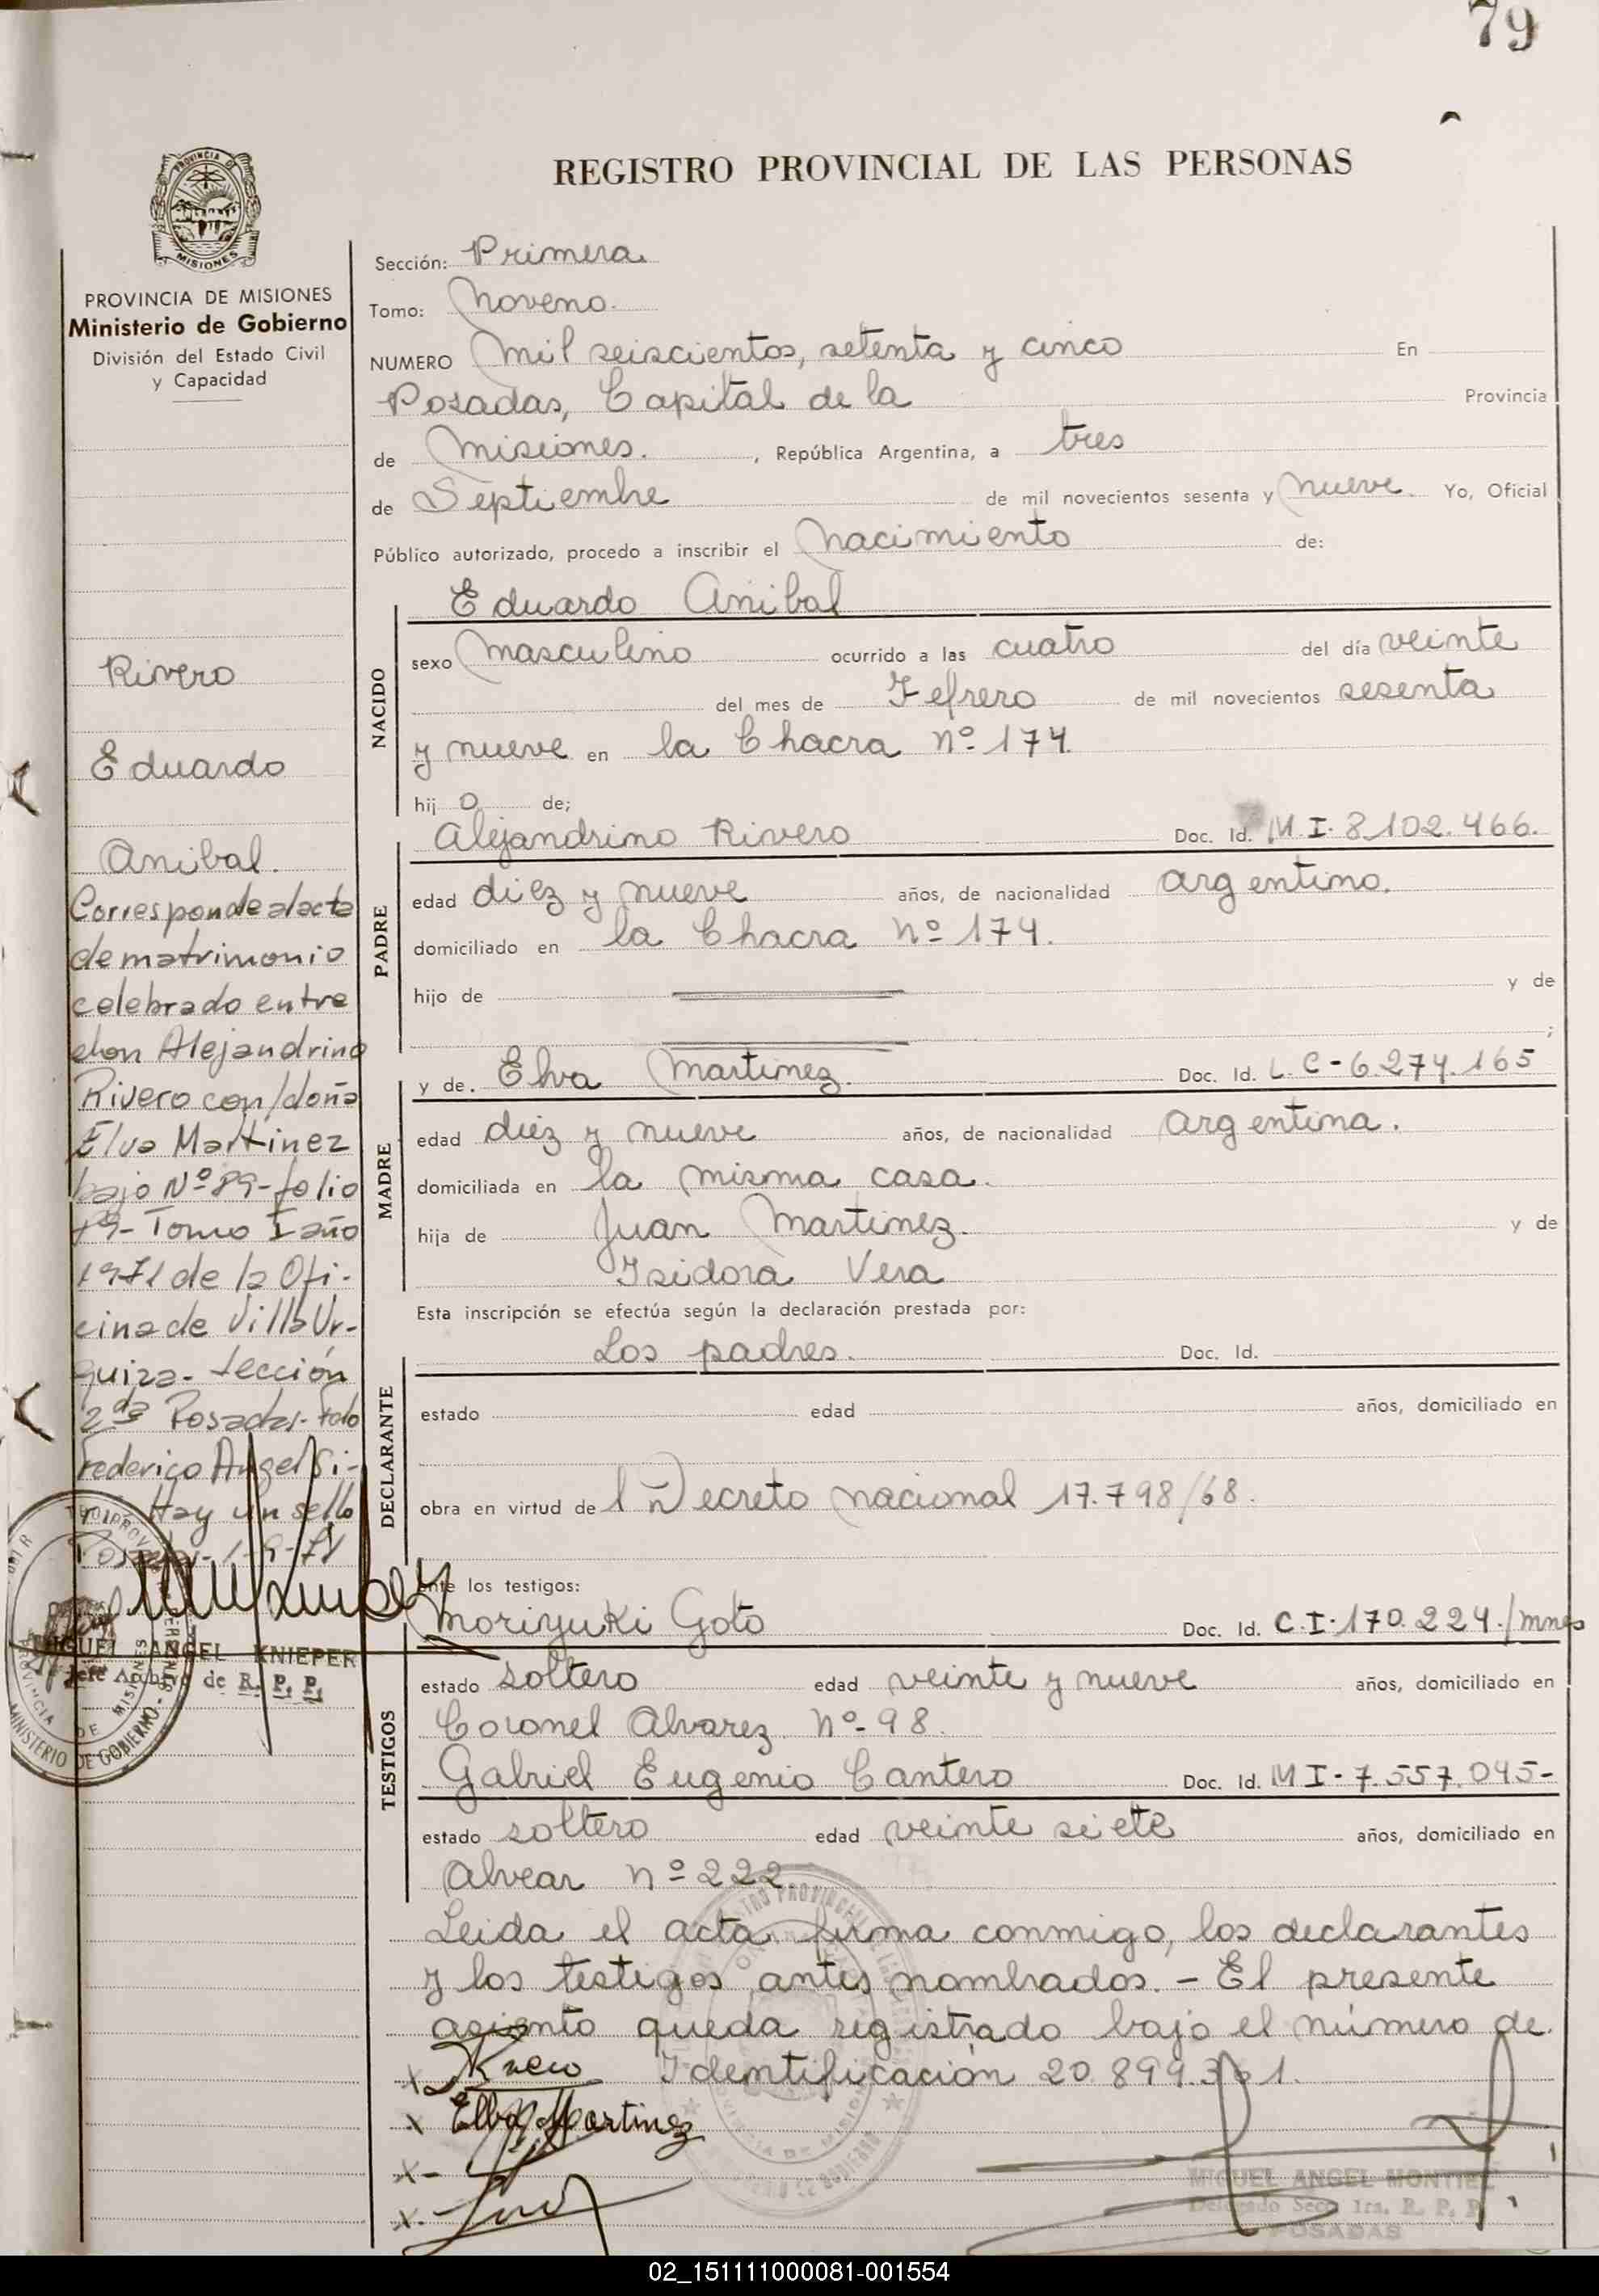 79
REGISTRO PROVINCIAL DE LAS PERSONAS
PROVINCIA DE
MISIONES
PROVINCIA DE MISIONES
Ministerio de Gobierno
División del Estado Civil
y Capacidad
Rivero
Eduardo
Anibal.
Corresponde al acta
de matrimonio
celebrado entre
don Alejandrino
Rivero con/doña
Elva Martinez
bajo Nº 89-folio
Tomo I año
1971 de la Ofi-
cina de Villa Ur-
quiza-Sección
2da Posadas-Fdo
Federico Angel
Hay un sello
Posadas-1-9-71
MIGUEL ANGEL KNIEPER
Jefe Archivo de R. P. P.
MINISTERIO DE GOBIERNO
PROVINCIA DE MISIONES
Sección: Primera
Tomo: Noveno.
NUMERO Mil seiscientos, setenta y cinco En
Posadas, Capital de la Provincia
de Misiones. , República Argentina, a tres
de Septiembre de mil novecientos sesenta y nueve. Yo, Oficial
Público autorizado, procedo a inscribir el nacimiento de:
NACIDO
Eduardo Anibal
sexo masculino ocurrido a las cuatro del día veinte
del mes de Fefrero de mil novecientos sesenta
y nueve en la Chacra nº 174.
hij o de;
PADRE
Alejandrino Rivero Doc. Id. M.I. 8.102.466.
edad diez y nueve años, de nacionalidad argentino.
domiciliado en la Chacra nº 174.
hijo de y de
;
MADRE
y de. Elva Martinez. Doc. Id. L.C-6.274.165
edad diez y nueve años, de nacionalidad argentina.
domiciliada en la misma casa.
hija de Juan Martinez. y de
Isidora Vera
Esta inscripción se efectúa según la declaración prestada por:
DECLARANTE
Los padres. Doc. Id.
estado edad años, domiciliado en
obra en virtud de l Decreto nacional 17.798/68.
ante los testigos:
TESTIGOS
Moriyuki Goto Doc. Id. C.I.170.224./mnes
estado soltero edad veinte y nueve años, domiciliado en
Coronel Alvarez nº-98.
Gabriel Eugenio Cantero Doc. Id. M I-7.557.045-
estado soltero edad veinte siete años, domiciliado en
Alvear nº 222.
Leida el acta firma conmigo, los declarantes
y los testigos antes nombrados.-El presente
asiento queda registrado bajo el número de
x Identificación 20.899.361.
x Elba Martinez
x-
x-
MIGUEL ANGEL MONTIEL
Delegado Secc. 1ra. R. P. P.
POSADAS
02_151111000081-001554